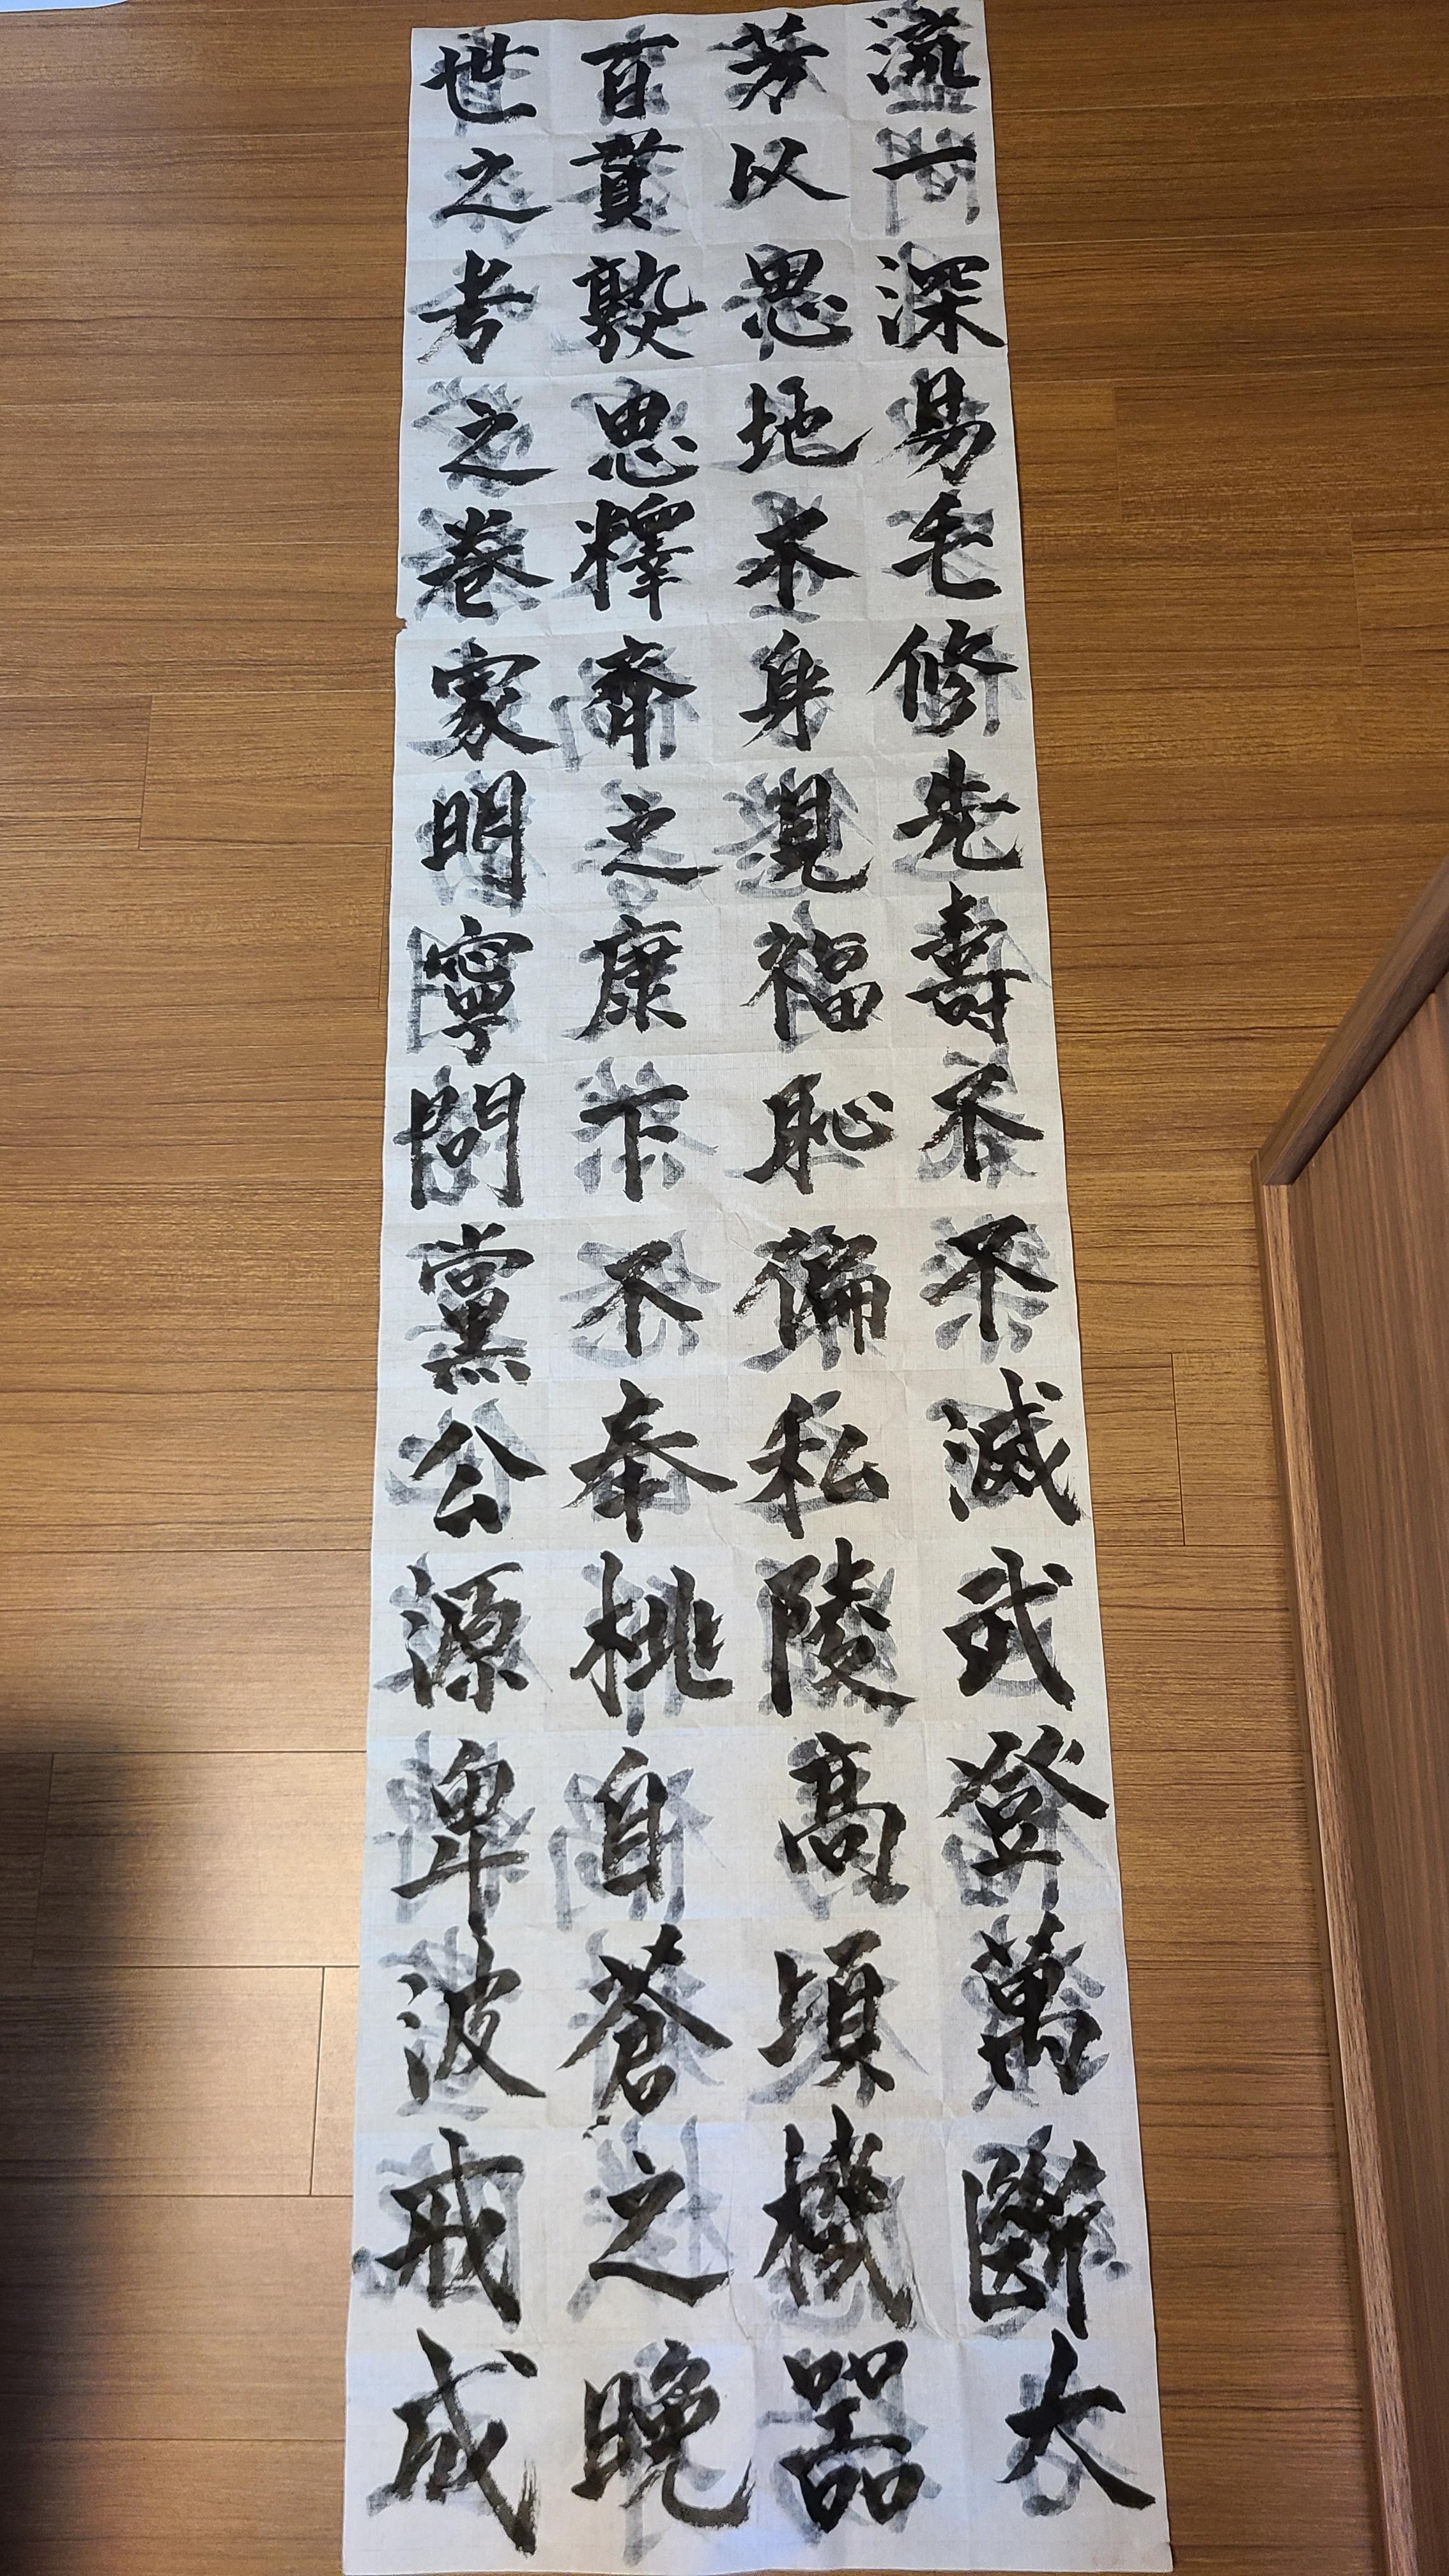 流芳百世
一以貫之
深思熟考
易地思之
手不釋卷
修身齊家
先見之明
壽福康寧
不恥下問
不偏不黨
滅私奉公
武陵桃源
登高自卑
萬頃蒼波
斷機之戒
大器晩成